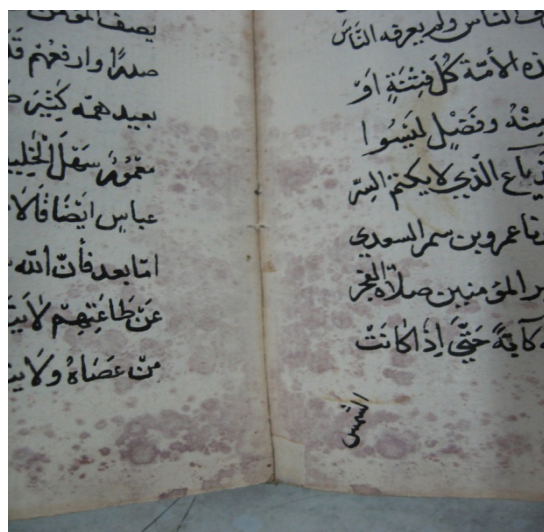 الناس ولم يعرفه الناس
ذه الأمّة كُلّ فِتْنَةٍ
وفَضْلٍ لَيْسُوا
الَّذِي لا يكتم السِرّ
عمرو بن سمر السعدي
المؤمنين صلاة الفجر
كابةً حَتّىَ اِذَا كانَتْ
الشمس
يصف المؤمن
صدرًا وارفعهم
بعيد همّه كثير
سَهْلَ
عباس ايضًا قال
امّا بعد فأنّ الله
عَنْ طاعَتِهِمْ لا
مِنْ عَصَاهُ ولا